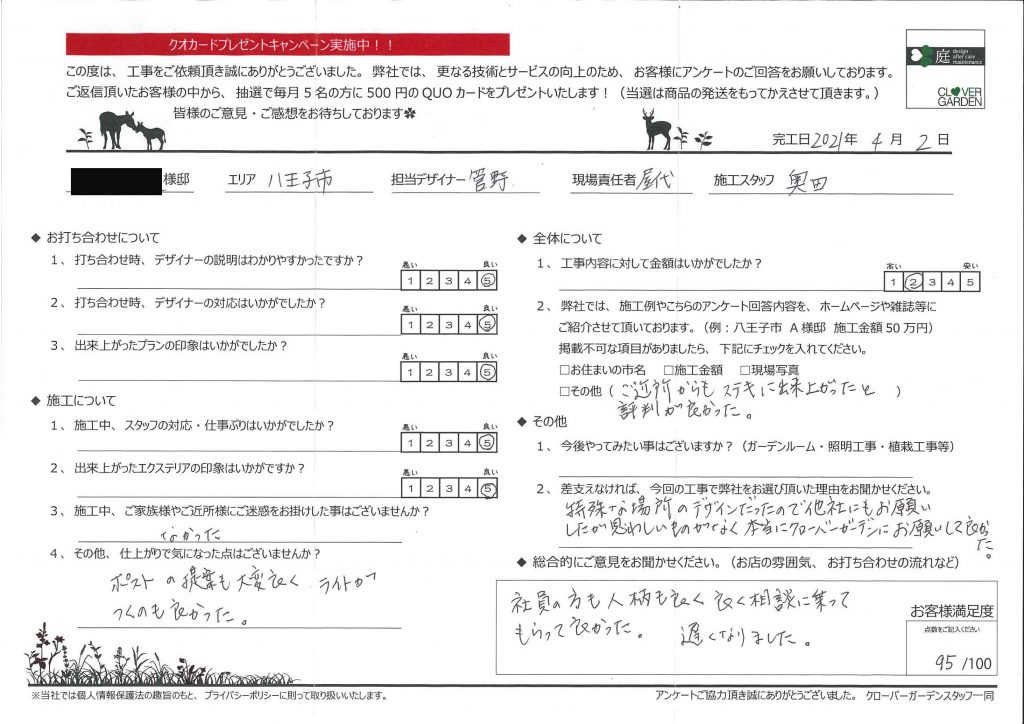 クオカードプレゼントキャンペーン実施中！！
庭 design after care maintenance
CLOVER GARDEN
この度は、工事をご依頼頂き誠にありがとうございました。弊社では、更なる技術とサービスの向上のため、お客様にアンケートのご回答をお願いしております。
ご返信頂いたお客様の中から、抽選で毎月５名の方に500円のQUOカードをプレゼントいたします！（当選は商品の発送をもってかえさせて頂きます。）
皆様のご意見・ご感想をお待ちしております
完工日2021年 4月 2日
様邸 エリア 八王子市 担当デザイナー 菅野 現場責任者 屋代 施工スタッフ 奥田
◆ お打ち合わせについて
１、打ち合わせ時、デザイナーの説明はわかりやすかったですか？
悪い 良い
1 2 3 4 5
２、打ち合わせ時、デザイナーの対応はいかがでしたか？
悪い 良い
1 2 3 4 5
３、出来上がったプランの印象はいかがでしたか？
悪い 良い
1 2 3 4 5
◆ 施工について
１、施工中、スタッフの対応・仕事ぶりはいかがでしたか？
悪い 良い
1 2 3 4 5
２、出来上がったエクステリアの印象はいかがですか？
悪い 良い
1 2 3 4 5
３、施工中、ご家族様やご近所様にご迷惑をお掛けした事はございませんか？
なかった
４、その他、仕上がりで気になった点はございませんか？
ポストの提案も大変良く ライトが
つくのも良かった。
◆ 全体について
１、工事内容に対して金額はいかがでしたか？
高い 安い
1 2 3 4 5
２、弊社では、施工例やこちらのアンケート回答内容を、ホームページや雑誌等に
ご紹介させて頂いております。（例：八王子市 A様邸 施工金額50万円）
掲載不可な項目がありましたら、下記にチェックを入れてください。
□お住まいの市名 □施工金額 □現場写真
□その他（ ご近所からも ステキに出来上がったと ）
評判が良かった。
◆ その他
１、今後やってみたい事はございますか？（ガーデンルーム・照明工事・植栽工事等）
２、差支えなければ、今回の工事で弊社をお選び頂いた理由をお聞かせください。
特殊な場所のデザインだったので他社にもお願い
したが思わしいものがなく本当にクローバーガーデンにお願いして良かった。
◆ 総合的にご意見をお聞かせください。（お店の雰囲気、お打ち合わせの流れなど）
社員の方も人柄も良く 良く相談に乗って
もらって良かった。 遅くなりました。
お客様満足度
点数をご記入ください
95 /100
※当社では個人情報保護法の趣旨のもと、プライバシーポリシーに則って取り扱いいたします。
アンケートご協力頂き誠にありがとうございました。クローバーガーデンスタッフ一同